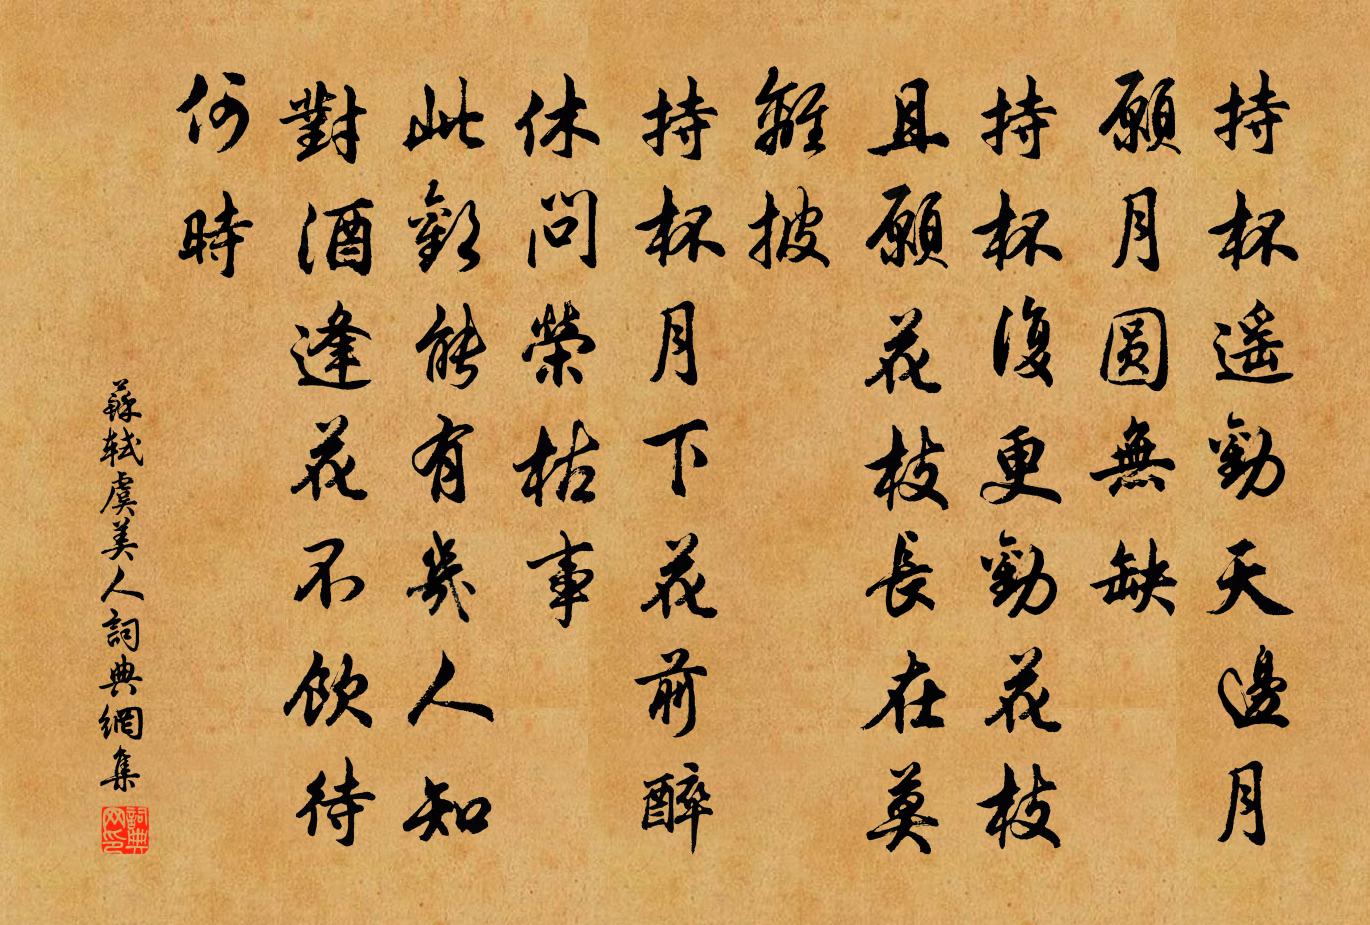 持杯遥勸天邊月
願月圆無缺
持杯復更勸花枝
且願花枝長在莫
離披
持杯月下花前醉
休問榮枯事
此歡能有幾人知
對酒逢花不飲待
何時
蘇軾虞美人詞典網集
詞典网印